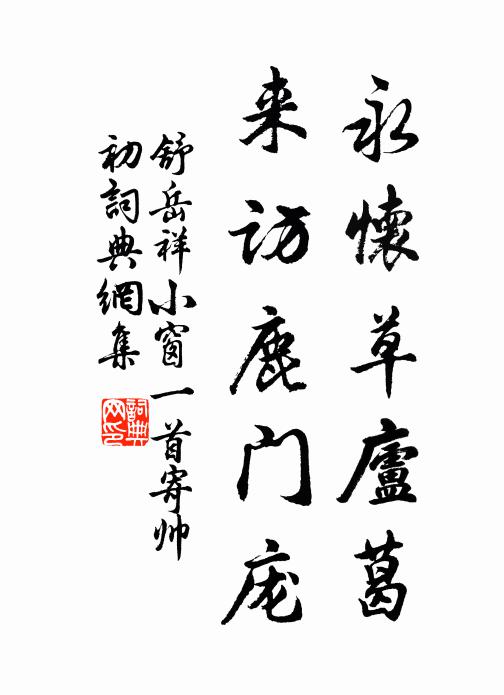 永懷草廬葛
来访鹿门庞
舒岳祥小窗一首寄帅
初詞典網集
詞典网印